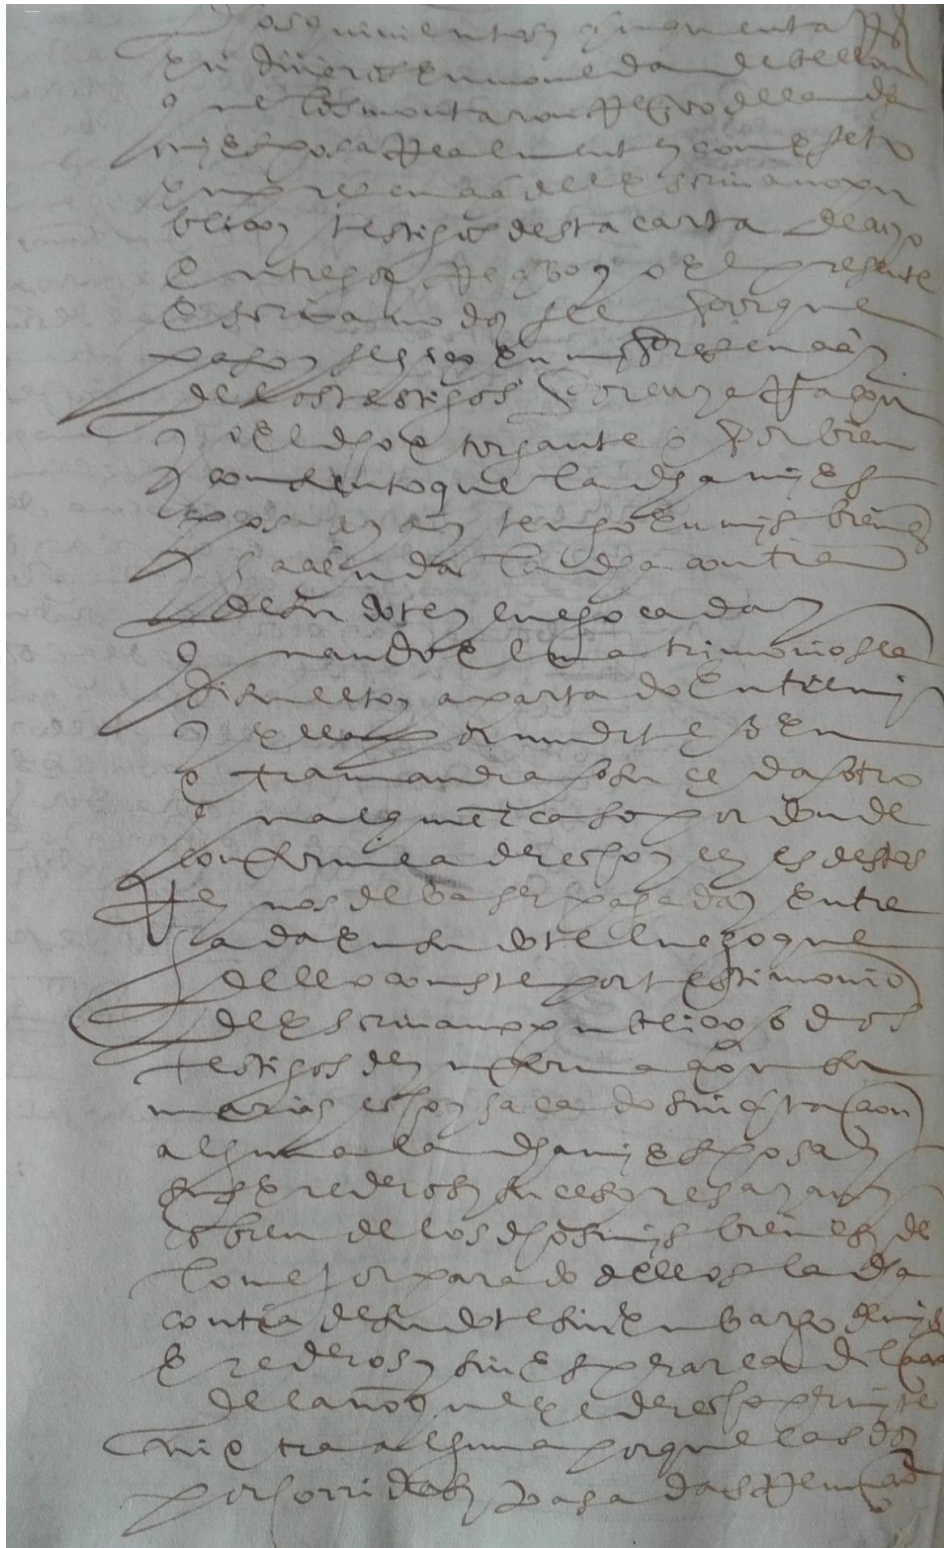 quinientos y cinquenta Rs
en dineros en moneda de vellon
que los montaron Reciuo de la dha
mi esposa Realmente y con efeto
en presencia del escriuano pu
blico y testigos desta carta de cuyo
entrego Reciuo yo el presente
escriuano doy fee porque
paso y se hiço en mi presencia y
de los testigos
y yo el dho otorgante por bien
y contento que la dha mi es
posa aya y tenga en mis bienes
y hacienda la dha contia
de su dote y luego cada y
quando el matrimonio sea
disuelto y apartado entre mi
y ella por muerte o en
otra manera o suceda otro
qualquier caso por donde
conforme a derecho y leyes destos
Reynos deba ser pagada y entre
gada en su dote luego que
dello conste por testimonio
de escriuano publico o dos
testigos de ynformaçion su
maria hecho y sacado sin citaçion
alguna la dha mi esposa y
sus erederos y sucesores ayan
o bien de los dhos mis bienes de
lo mejor parado dellos la dha
contia de su dote sin embargo de mis
erederos y sin esperar a la dilaçion
del año que el derecho permite
ni otra alguna porque las doy
por corridas y pasadas Renunçio